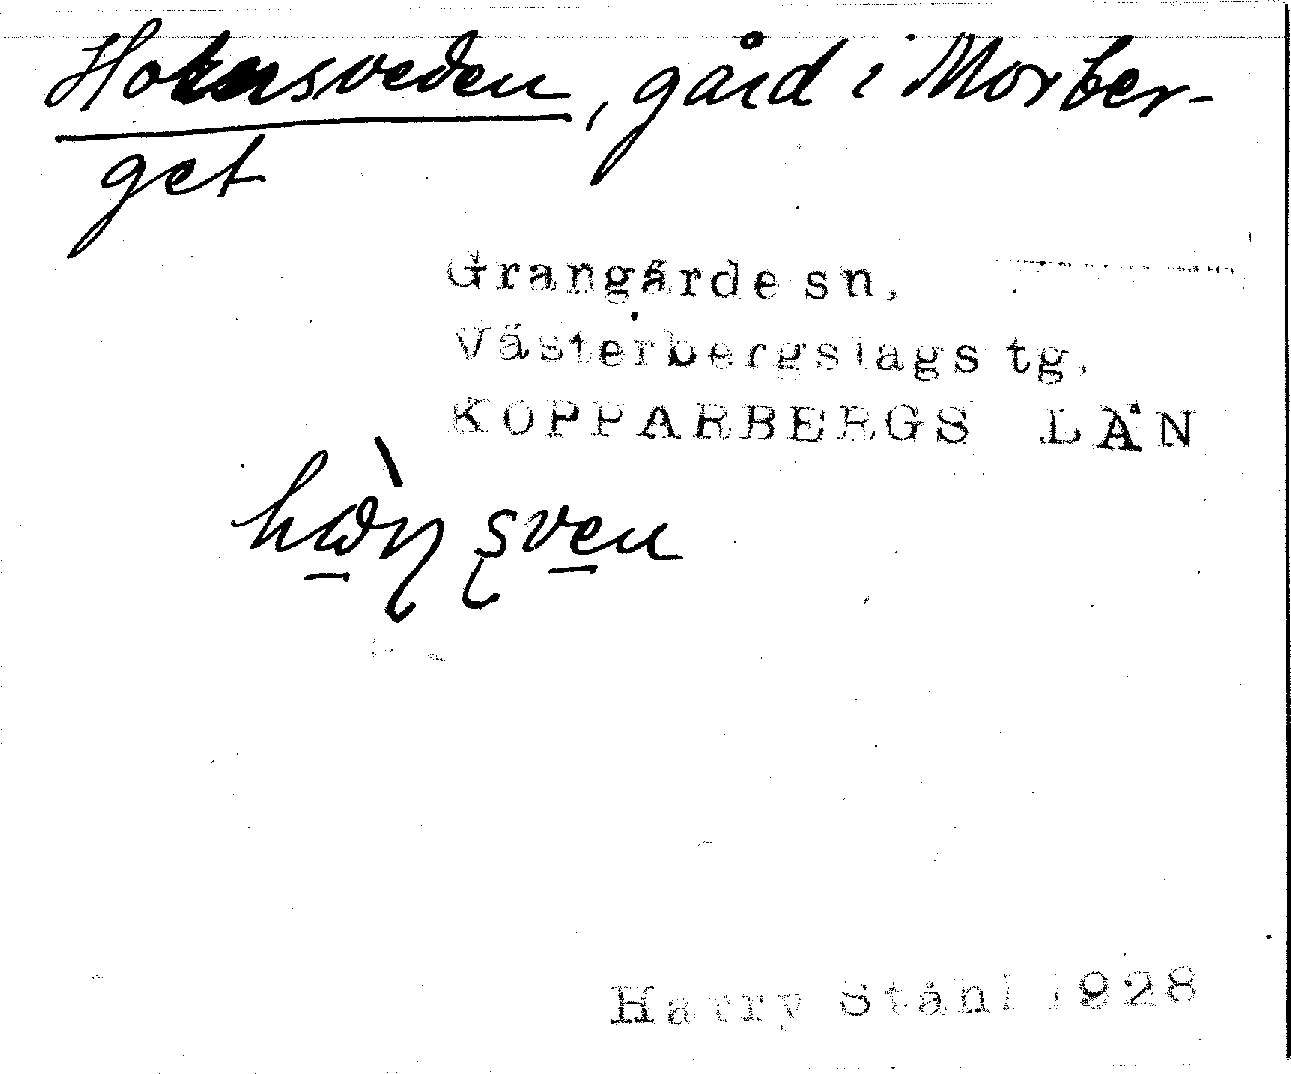 Hornsveden, gård i Morber-
get
Grangärde sn,
Västerbergslags tg.
KOPPARBERGS LÄN
Harry Ståhl 1928